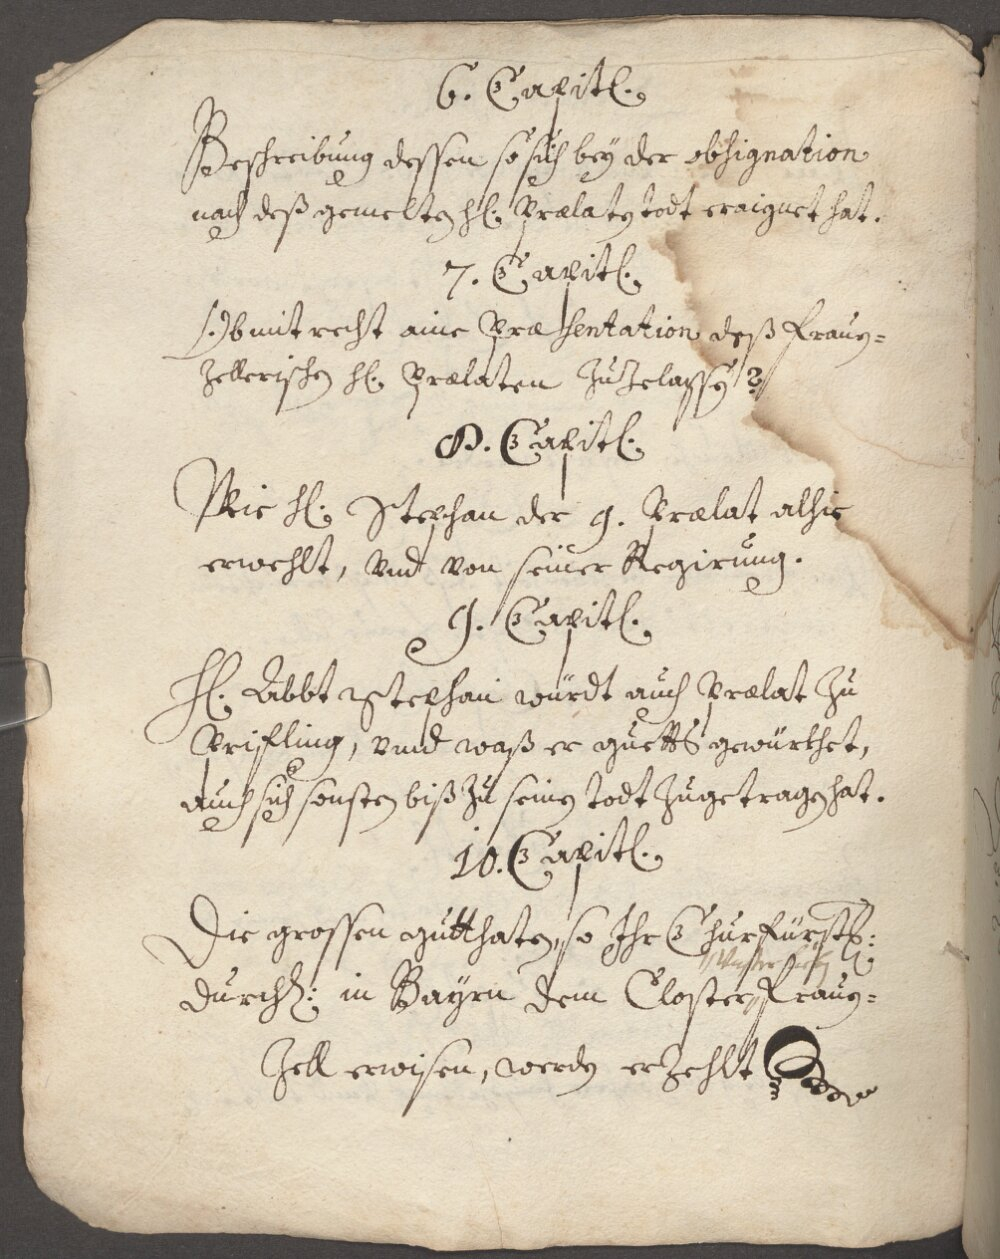 6. Capitl.
Beschreibung dessen so sich bey der obsignation
nach deß gemelten hl. Prælaten todt eraignet hat.
7. Capitl.
Ob mit recht aine Præsentation deß Frauen-
zellerischen hl. Prælaten zu zelassen?
8. Capitl.
Wie hl. Stephan der 9. Prælat alhie
erwehlt, vnd von seiner Regirung.
9. Capitl.
Hl. Abbt Stephan würdt auch Prælat zu
Prifling, vnnd waß er guetts gewürkhet,
auch sich sonsten biß zu seinen todt zugetragen hat.
10. Capitl.
Die grossen gutthaten, so Ihr Churfürstl:
durchl: in Bayrn dem Closter Frauen-
zell erwisen, werden erzehlt